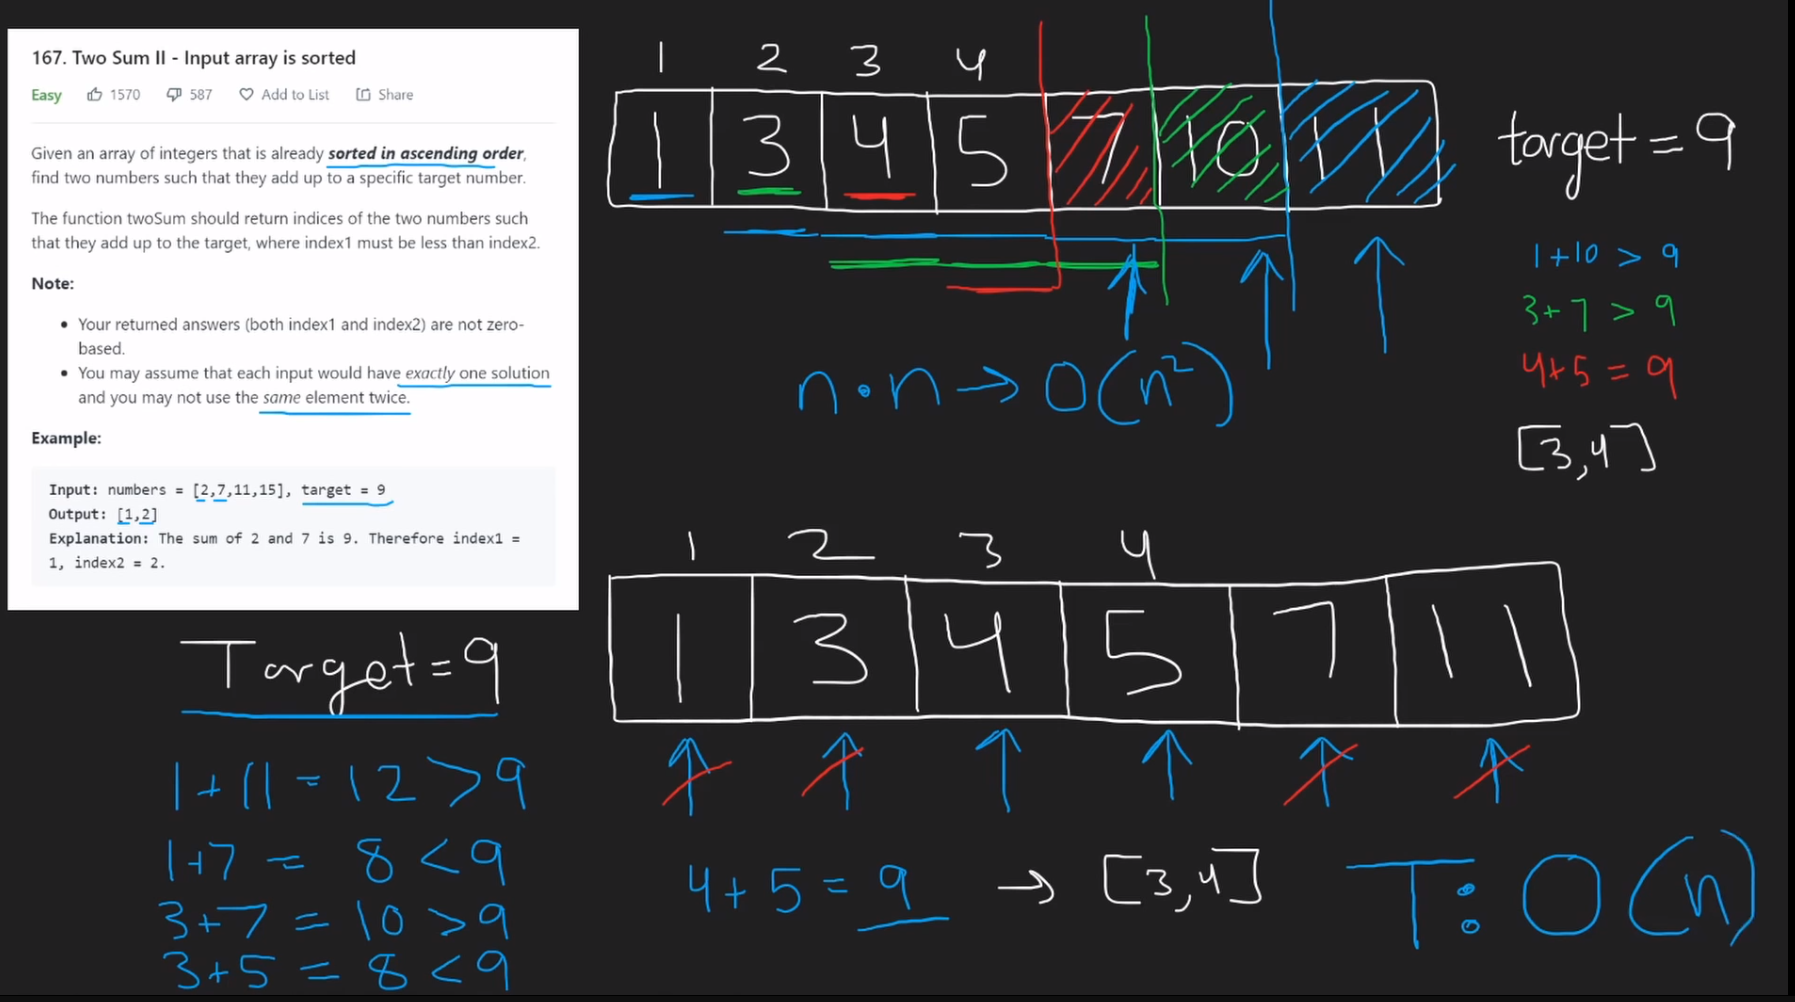 167. Two Sum II - Input array is sorted
Easy 1570 587 Add to List Share
Given an array of integers that is already sorted in ascending order,
find two numbers such that they add up to a specific target number.
The function twoSum should return indices of the two numbers such
that they add up to the target, where index1 must be less than index2.
Note:
• Your returned answers (both index1 and index2) are not zero-
based.
• You may assume that each input would have exactly one solution
and you may not use the same element twice.
Example:
Input: numbers = [2,7,11,15], target = 9
Output: [1,2]
Explanation: The sum of 2 and 7 is 9. Therefore index1 =
1, index2 = 2.
1 2 3 4
1 3 4 5 7 10 11
target = 9
1+10 > 9
3+7 > 9
4+5 = 9
[3,4]
n·n→O(n²)
1 2 3 4
1 3 4 5 7 11
Target=9
1+11=12>9
1+7 = 8<9
3+7 = 10>9
3+5 = 8<9
4+5=9 → [3,4]
T: O(n)